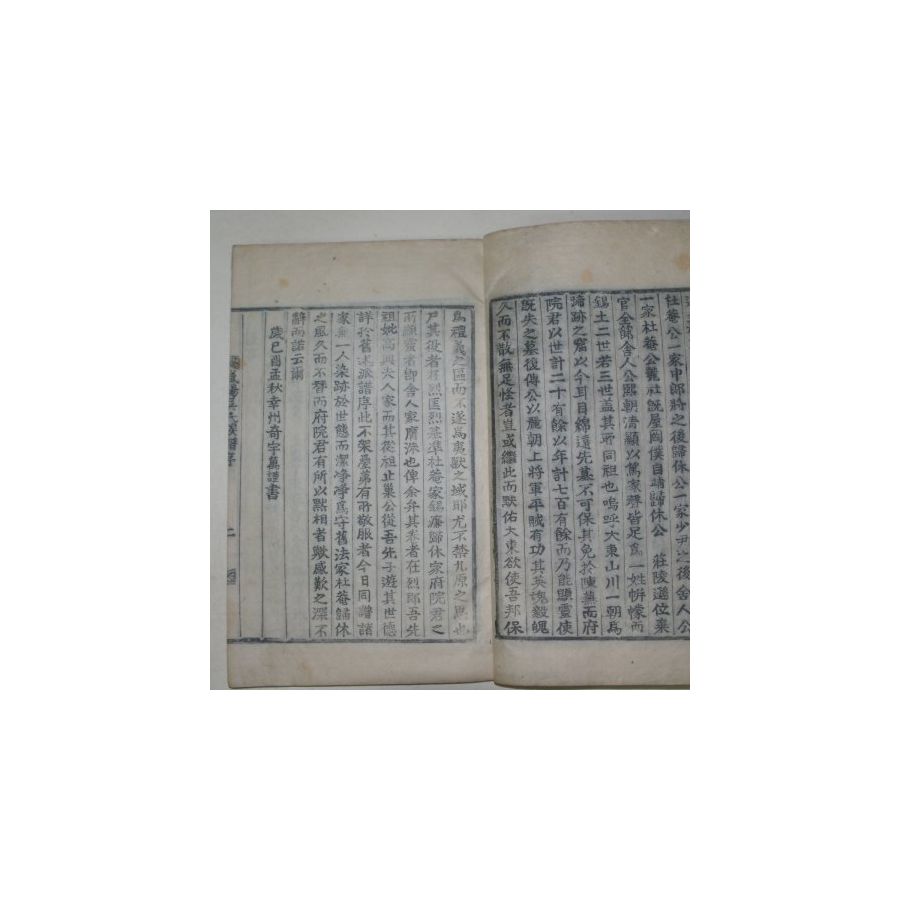 杜菴公一家中郎將之後歸休公一家少尹之後舍人公
一家杜菴公麗社旣屋罔僕自靖歸休公 莊陵遜位棄
官全節舍人公熙朝淸顯以篤家聲皆足爲一姓帡幪而
錫土二世若三世盖其所同胆也嗚呼大東山川一朝爲
蹄跡之窟以今耳目緜遠先墓不可保其免於陳蕪而府
院君以世計二十有餘以年計七百有餘而乃能顯靈使
旣失之墓復傳公以麗朝上將軍平賊有功其英魂毅魄
久而不散無足怪者豈或繼此而默佑大東欲使吾邦保
爲禮義之區而不遂爲夷獸之域耶尤不禁九原之思也
尸其役者丙烈匡烈基準杜菴家錫 歸休家府院君之
所顯靈者卿舍人家 洙也俾余弁其卷者在烈郎吾先
祖妣高興夫人家而其從祖止巢公從吾先子遊其世德
詳於舊述派譜序此不架疊第有所敬服者今日同譜諸
家無一人染跡於世態而潔淨淨爲守舊法家杜菴歸休
之風久而不替而府院君有所以默相者歟感歎之深不
辭而諾云爾
歲己酉孟秋幸州奇宇萬謹書